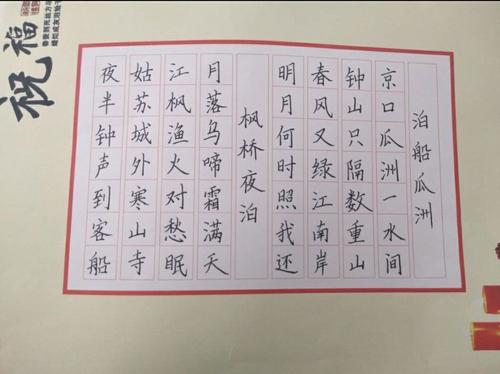 泊船瓜洲
京口瓜洲一水间
钟山只隔数重山
春风又绿江南岸
明月何时照我还
枫桥夜泊
月落乌啼霜满天
江枫渔火对愁眠
姑苏城外寒山寺
夜半钟声到客船
祝福